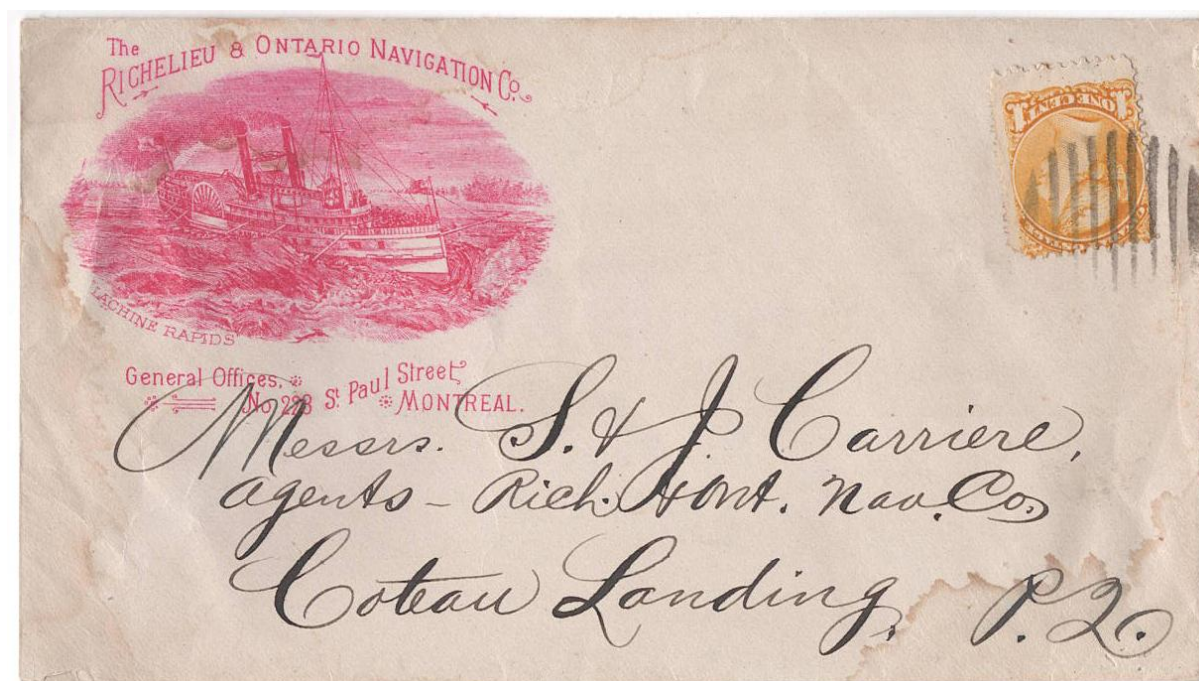 The
RICHELIEU & ONTARIO NAVIGATION Co.
LACHINE RAPIDS
General Offices,
No 228 St. Paul Street
MONTREAL.
ONE CENT
1 1
Messrs. S. & J. Carriere,
agents - Rich. & Ont. Nav. Co.
Coteau Landing, P.Q.